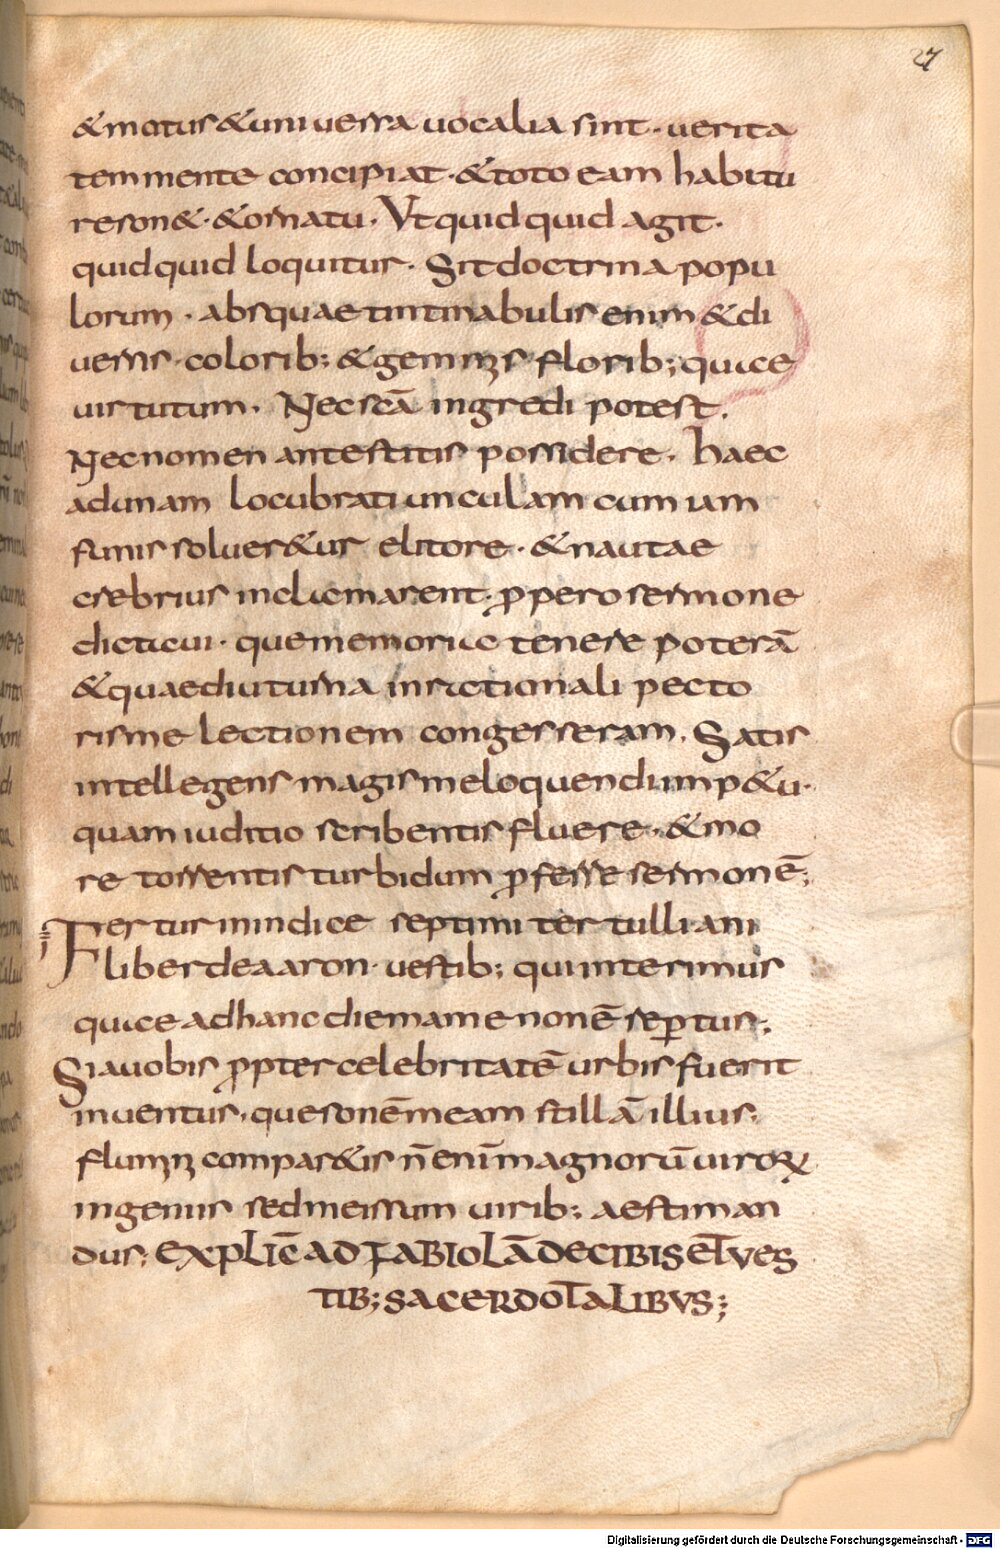 27
&motus&uniuersa uocalia sint · uerita
temmente concipiat · &toto eam habitu
reson& · &ornatu · Vtquidquid agit ·
quidquid loquitur · Sitdoctrina popu
lorum · absquae tintinabulis enim &di
uersis · colorib; &gemmis florib; que
uirtutum · Necscā ingredi potest ·
Necnomen antestitis possidere · haec
adunam locubratiunculam cum iam
funis soluer&ur elitore · &nautae
crebrius inclamarent · ꝓpero sermone
dictaui · quememoria tenere poterā
&quaediuturna inrationali pecto
risme lectionem congesseram · Satis
intellegens magismeloquendi imp&u ·
quam iuditio scribentis fluere · &mo
re torrentis turbidum ꝓferre sermonē;
Fertur inindice septimi tertulliani
liberdeaaron · uestib; quiinterimus
que adhanc diemamenonē reꝑtus;
Siauobis ꝓpter celebritatē urbis fuerit
inuentus · quesonēmeam stillā illius ·
flumini compar&is n̄ enī magnorū uirorꝝ
ingeniis sedmeissum uirib; aestiman
dus; EXPLIC̄ AD FABIOLĀ DECIBIS ET VES
TIB; SACERDOTALIBVS;
Digitalisierung gefördert durch die Deutsche Forschungsgemeinschaft - DFG